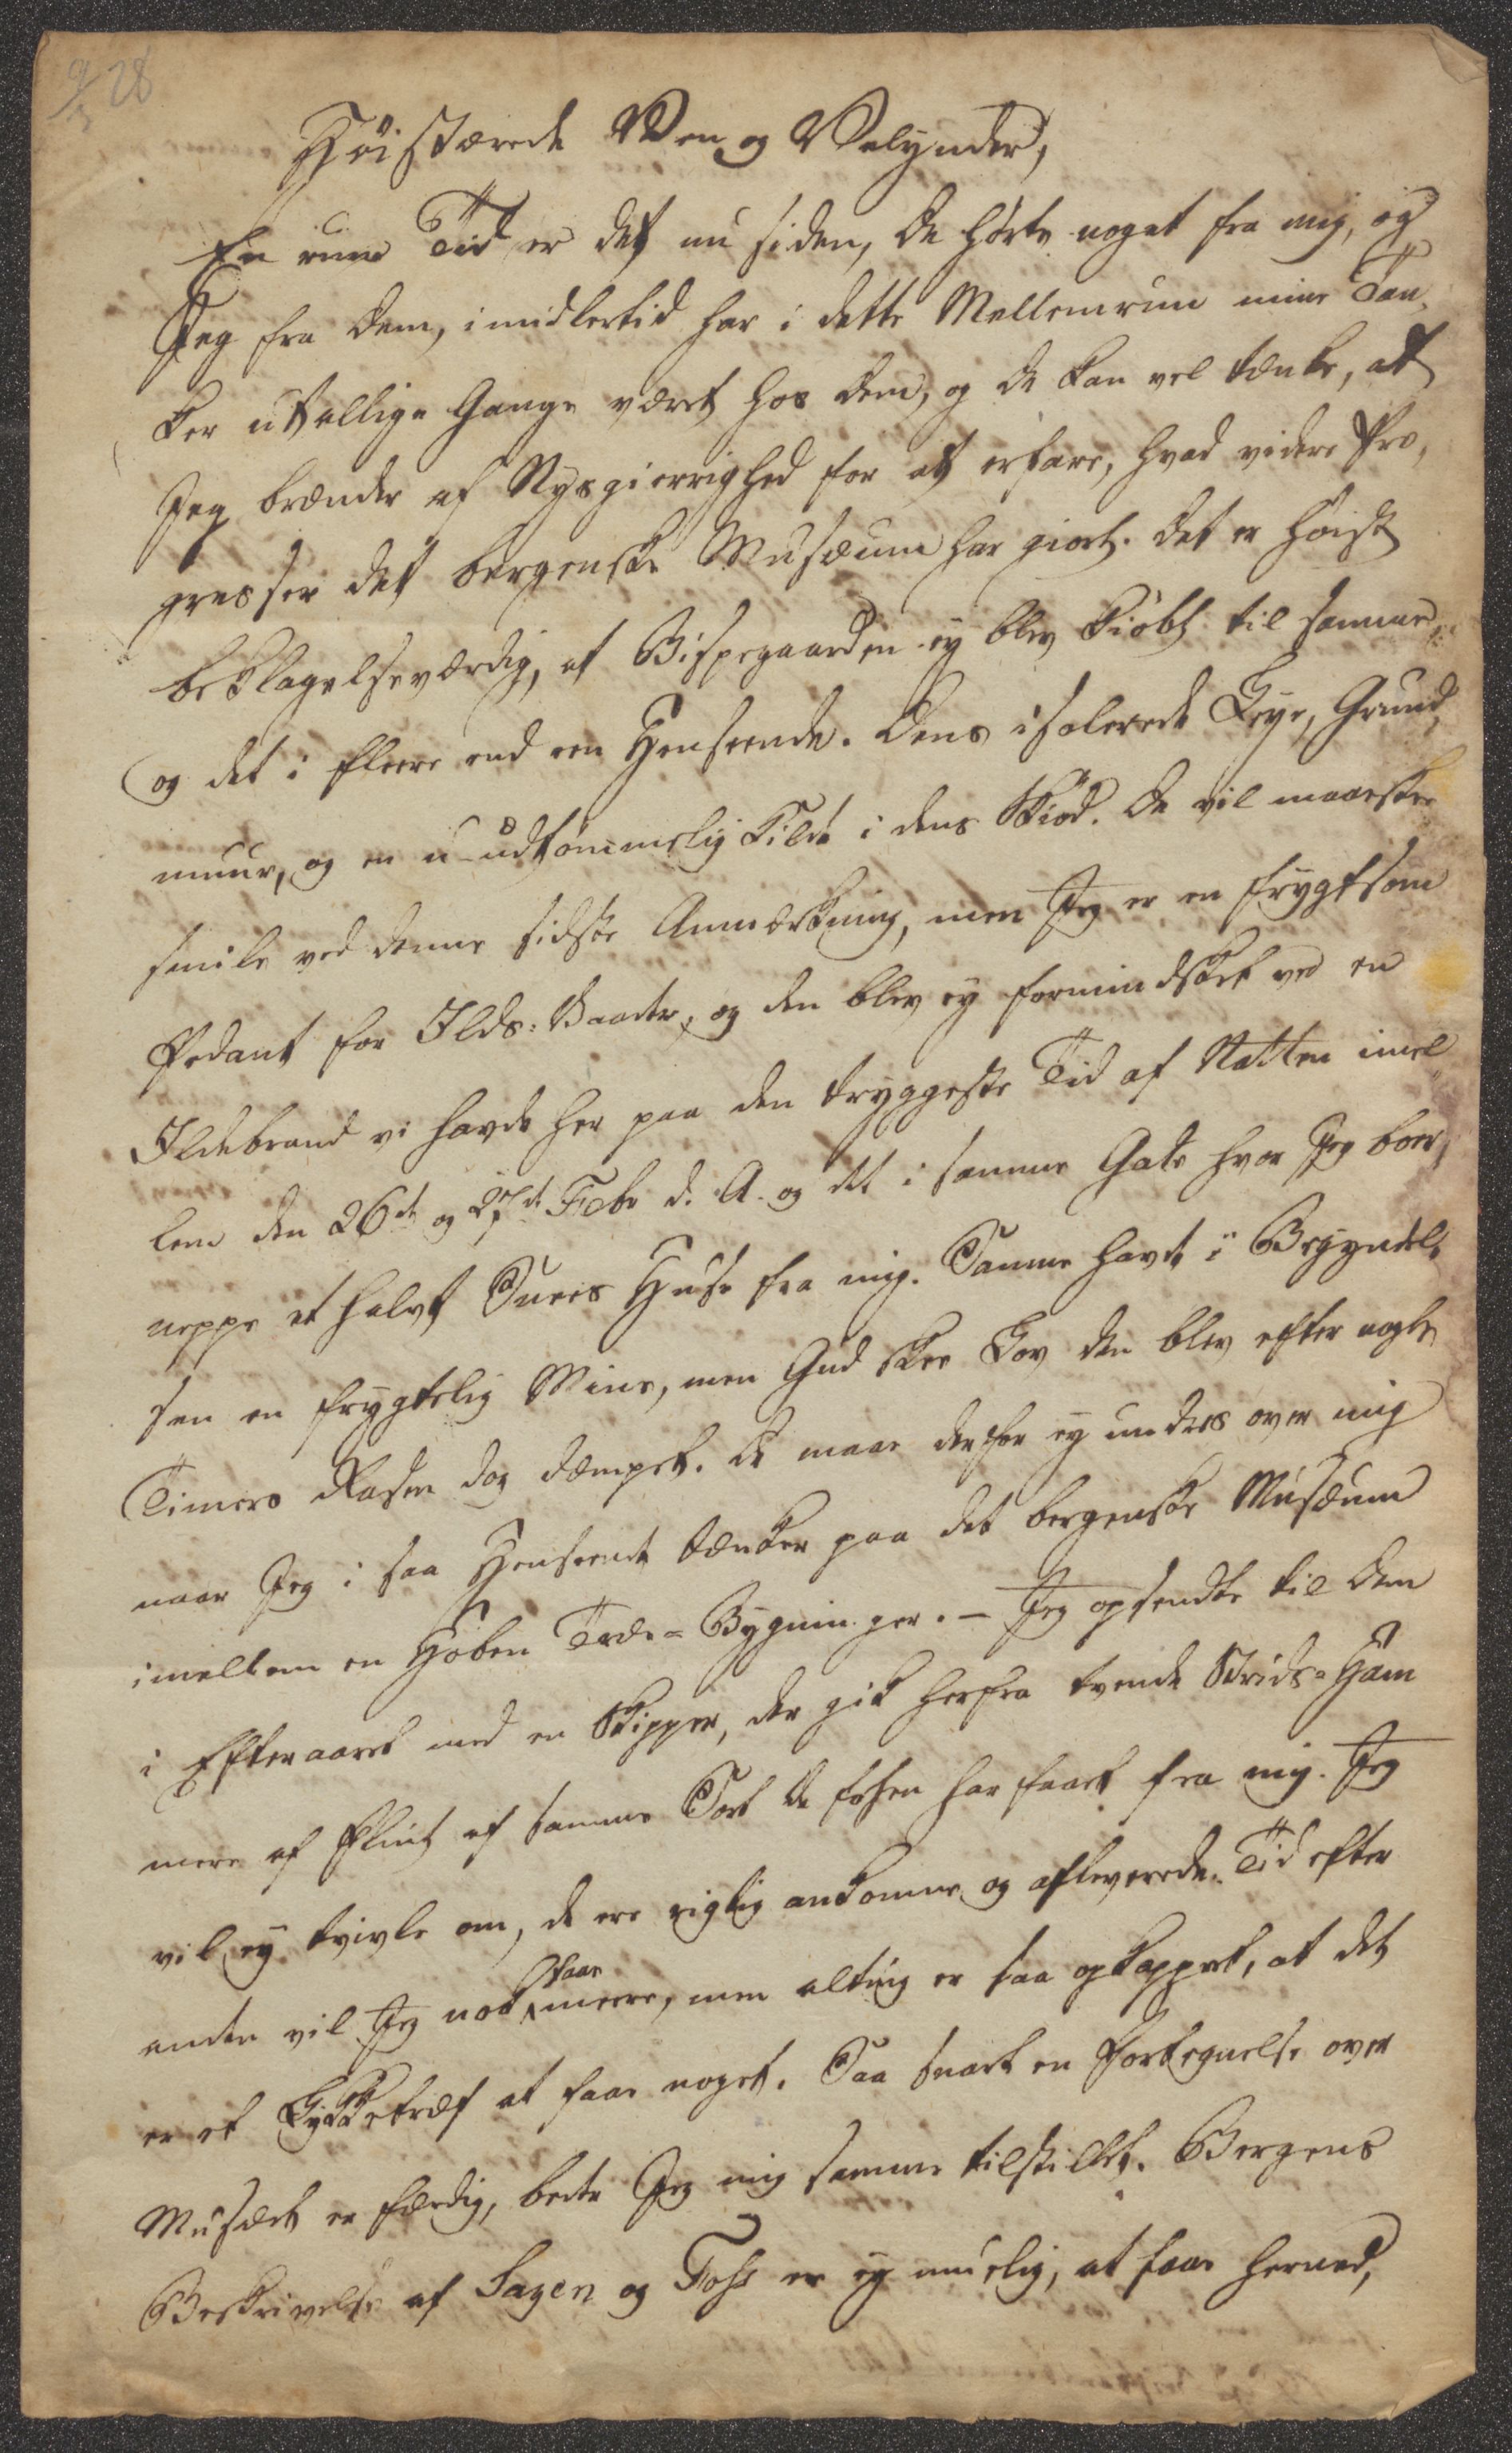 9/3 28
Høistærede Ven og Velynder,
En rum Tid er det nu siden, De hørte noget fra mig, og
Jeg fra Dem, imidlertid har i dette Mellemrum mine Tan,
ker utallige Gange været hos Dem, og De kan vel tænke, at
Jeg brænder af Nysgierrighed for at erfare, hvad videre Pro,
gresser det bergenske Musæum har giort. Det er høist
beklagelseværdig, at Bispegaarden ey blev kiöbt til samme
og det i fleere end een Henseende. Dens isolerede Leye, Grund,
muur, og en u-udtømmelig Kilde i dens Skiød. De vil maaskee
smile ved denne sidste Anmærkning, men Jeg er en frygtsom
Pedant for Ilds-Vaade, og den blev ey formindsket ved en
Ildebrand vi havde her paa den tryggeste Tid af Natten imel
lem den 26de og 27de Febr d. A. og det i samme Gade hvor Jeg boer,
neppe et halvt Sneis Huse fra mig. Samme havde i Begyndel,
sen en frygtelig Mine, men Gud skee Lov den blev efter nogle
Timers Rasen dog dæmpet. De maae derfor ey undres over mig
naar Jeg i saa Henseende tænker paa det bergenske Musæum
imellem en Hoben Træ-Bygninger. – Jeg opsendte til Dem
i Efteraaret med en Skipper, der gik herfra tvende Strids-Ham
mere af Flint af samme Sort De forhen har faaet fra mig. Jeg
vil ey tvivle om, de ere rigtig ankomne og afleverede. Tid efter
anden vil Jeg nok faae meere, men alting er saa opkappet, at det
er et Lykketræf at faae noget. Saa snart en Fortegnelse over
Musæet er færdig, beder Jeg mig samme tilstillet. Bergens
Beskrivelse af Sagen og Foss er ey muelig, at faae herned,